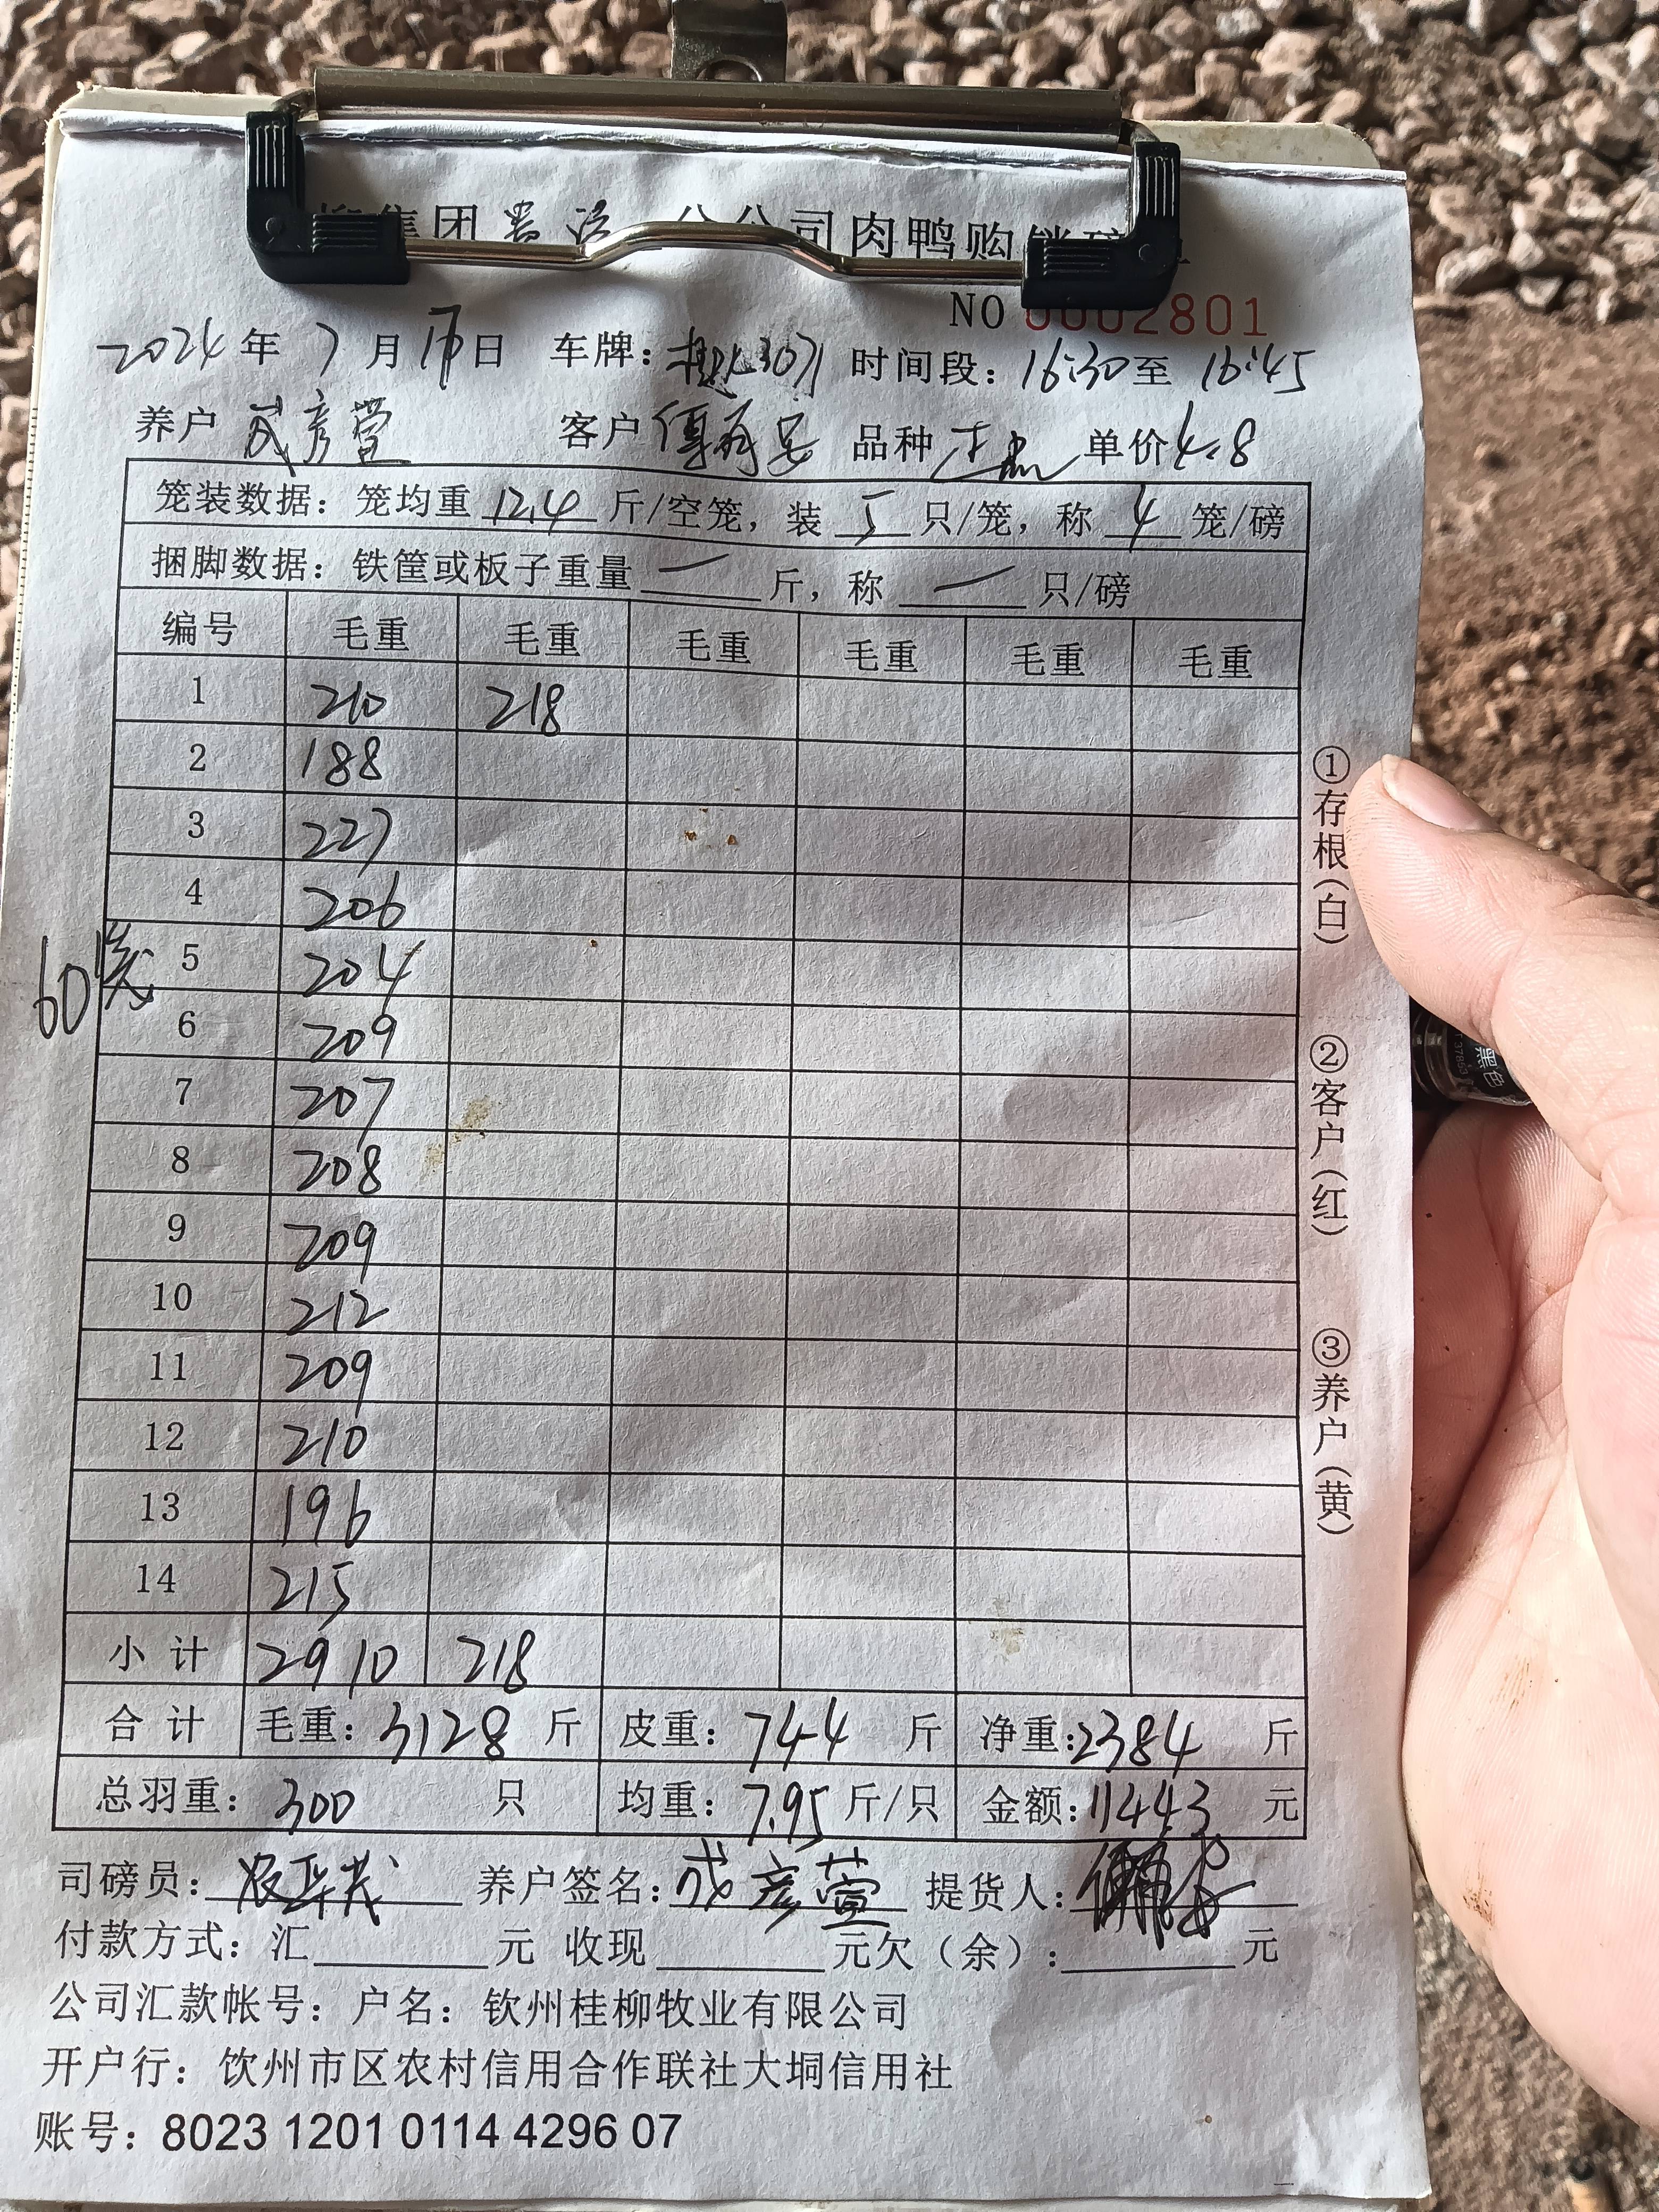 集团 公司肉鸭购销
NO 0002801
2024年7月17日 车牌: 时间段:16:30至16:45
养户 成彦萱 客户 品种 单价4.8
笼装数据:笼均重12.4斤/空笼,装5只/笼,称4笼/磅
捆脚数据:铁筐或板子重量—斤,称—只/磅
编号 毛重 毛重 毛重 毛重 毛重 毛重
1 210 218
2 188
3 227
4 206
5 204
60笼
6 209
7 207
8 208
9 209
10 212
11 209
12 210
13 196
14 215
小计 2910 218
合计 毛重:3128斤 皮重:744斤 净重:2384斤
总羽重:300只 均重:7.95斤/只 金额:11443元
司磅员: 养户签名:成彦萱 提货人:
付款方式:汇 元 收现 元欠(余): 元
公司汇款帐号:户名:钦州桂柳牧业有限公司
开户行:钦州市区农村信用合作联社大垌信用社
账号:8023 1201 0114 4296 07
①存根(白)
②客户(红)
③养户(黄)
黑色